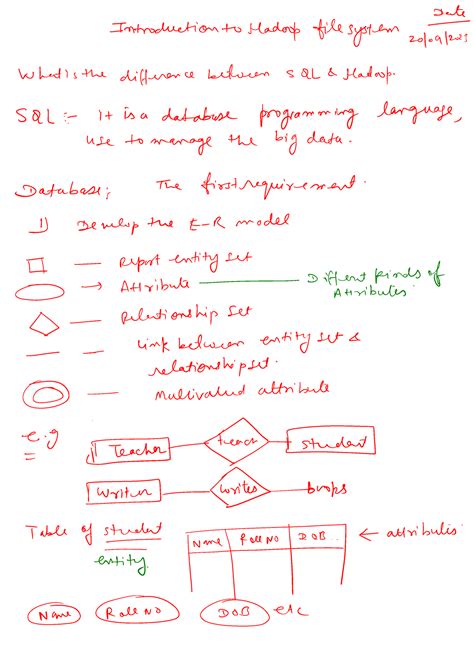 Date
Introduction to Hadoop file system
20/09/2023
What is the difference between SQL & Hadoop.
SQL :- It is a database programming language,
use to manage the big data.
Database; The first requirement.
1) Develop the E-R model
— Report entity set
→ Attribute — Different kinds of
Attributes
— Relationship set
— Link between entity set &
relationship set.
— Multivalued attribute
e.g
Teacher teach student
Writer writes
Table of student
Name Roll No DOB ← attributes
entity
Name Roll No DOB etc